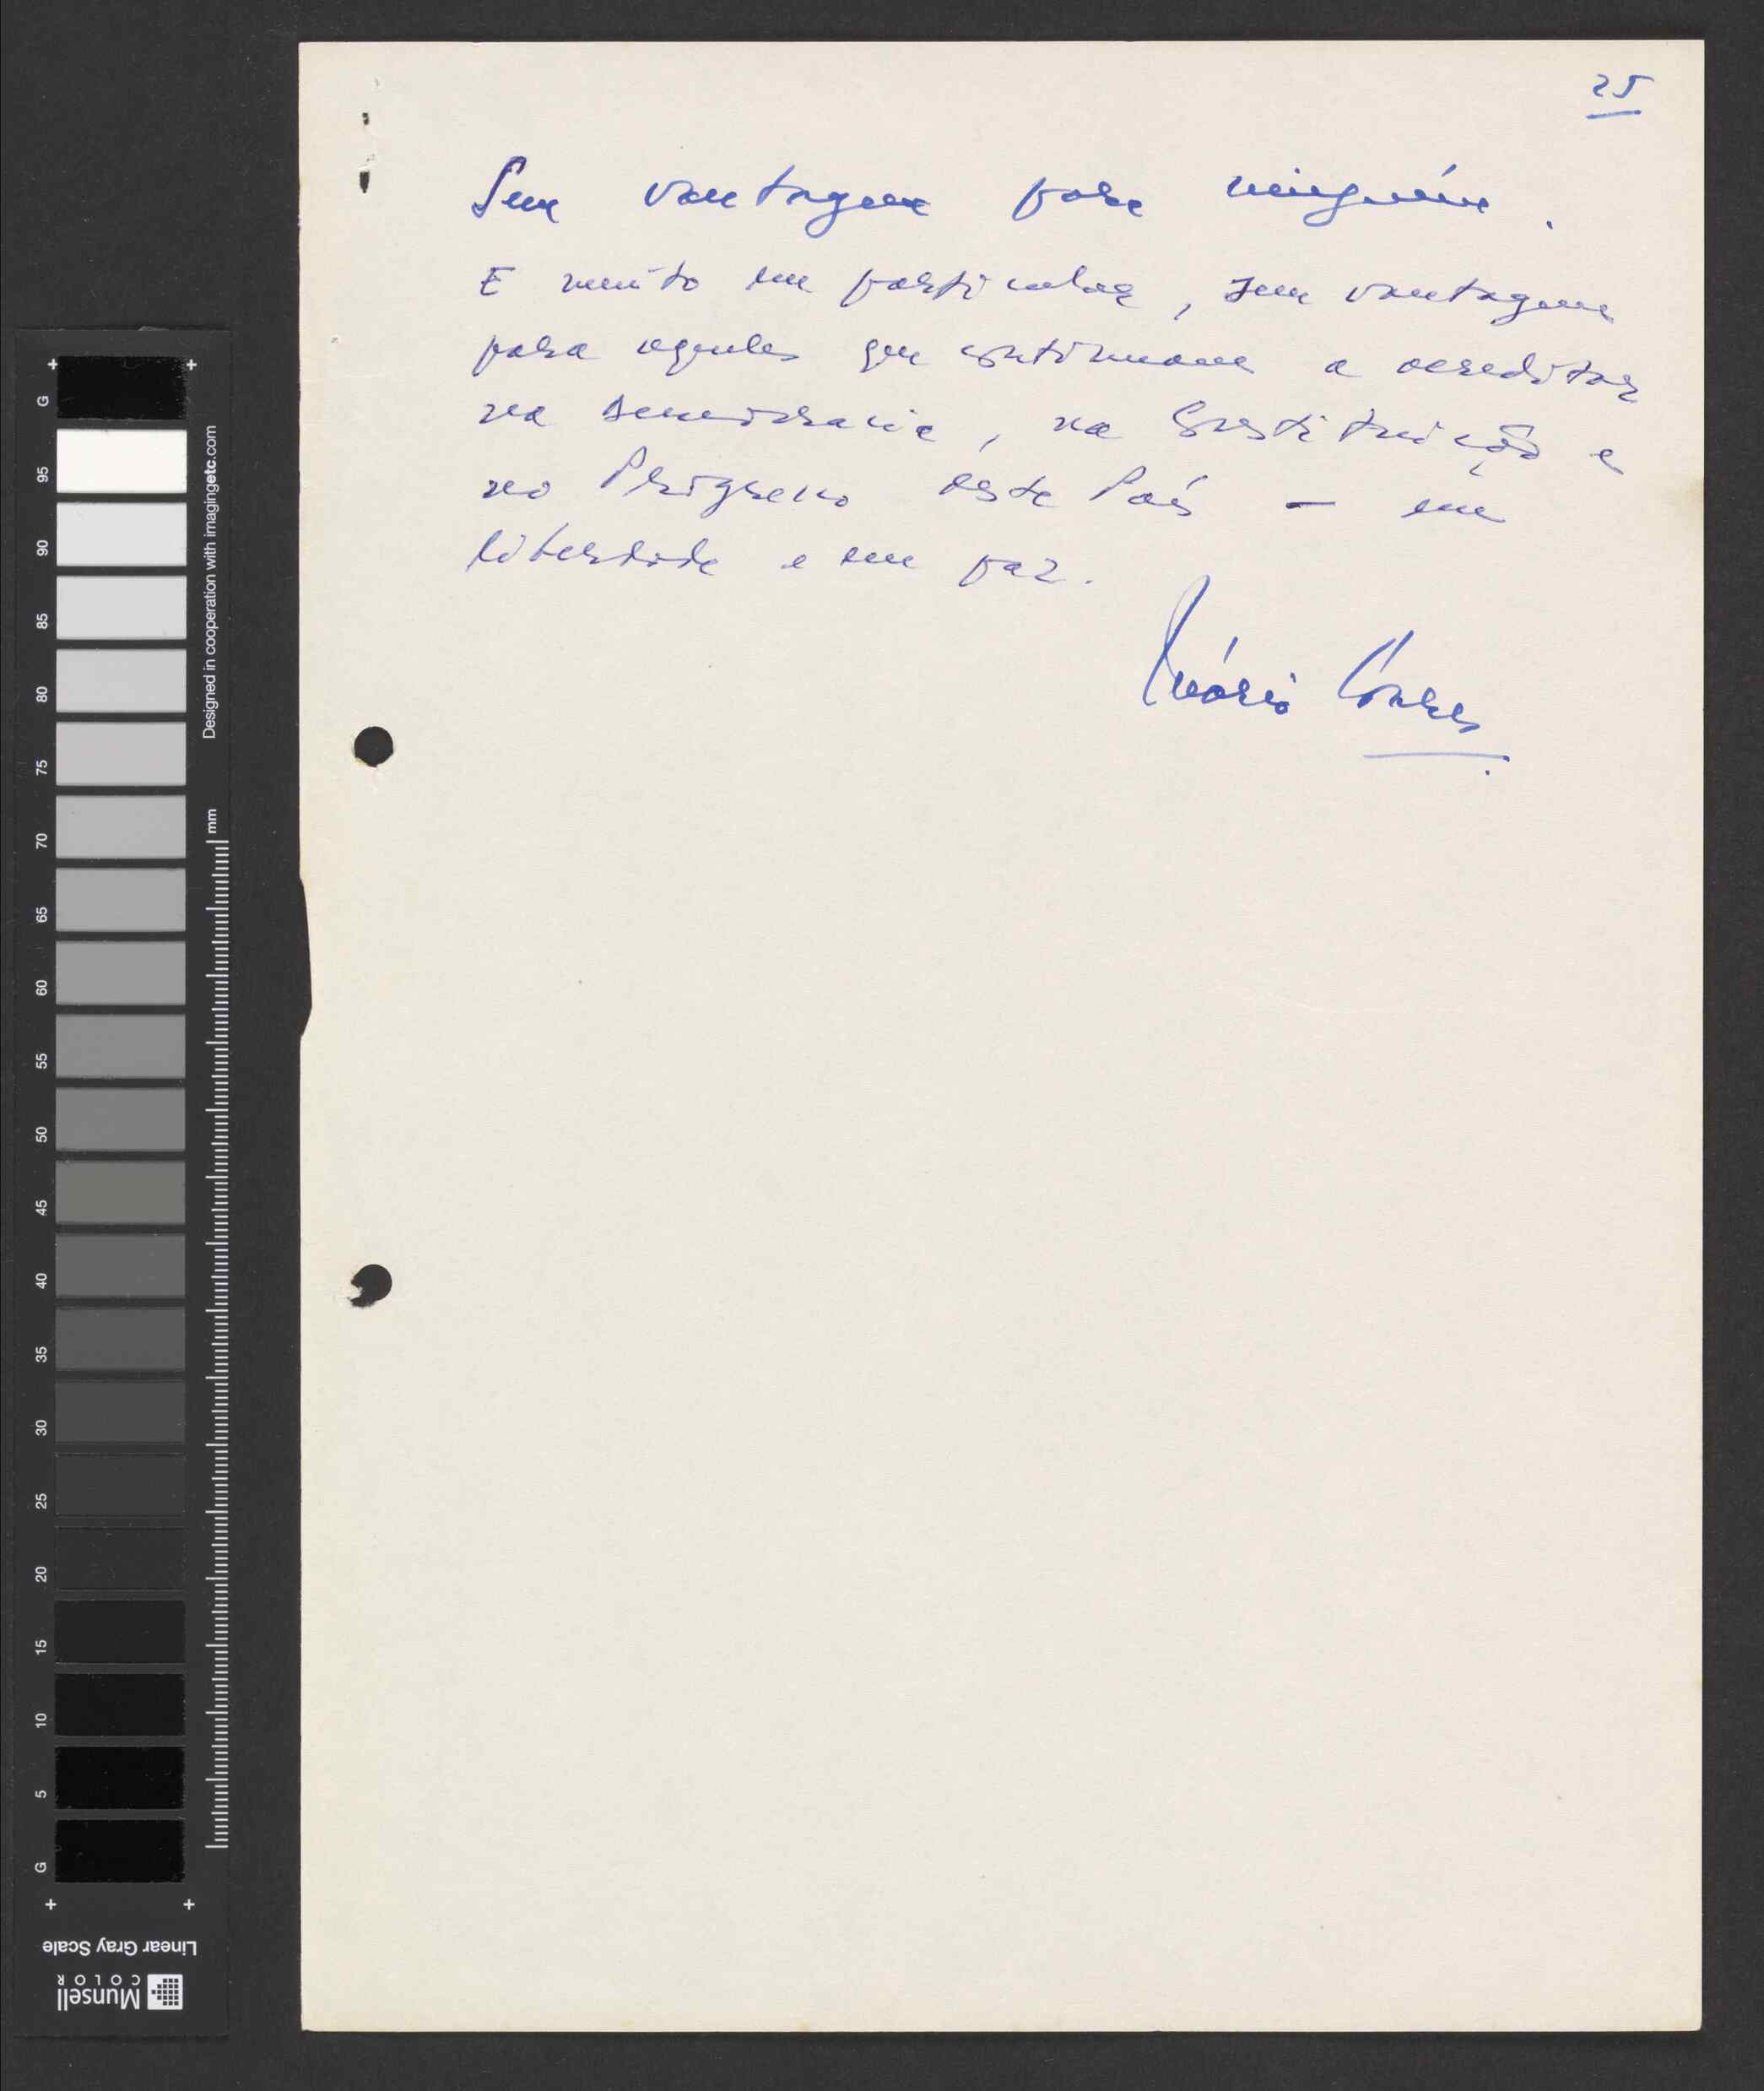 25
Sem vantagem para ninguém.
E muito em particular, sem vantagem
para aqueles que continuam a acreditar
na democracia, na Constituição e
no Progresso deste País — em
liberdade e em paz.
Mário Soares
G
95
90
85
80
75
70
65
60
55
50
45
40
35
30
25
20
15
10
5
G
Designed in cooperation with imagingetc.com
mm
Linear Gray Scale
Munsell
COLOR